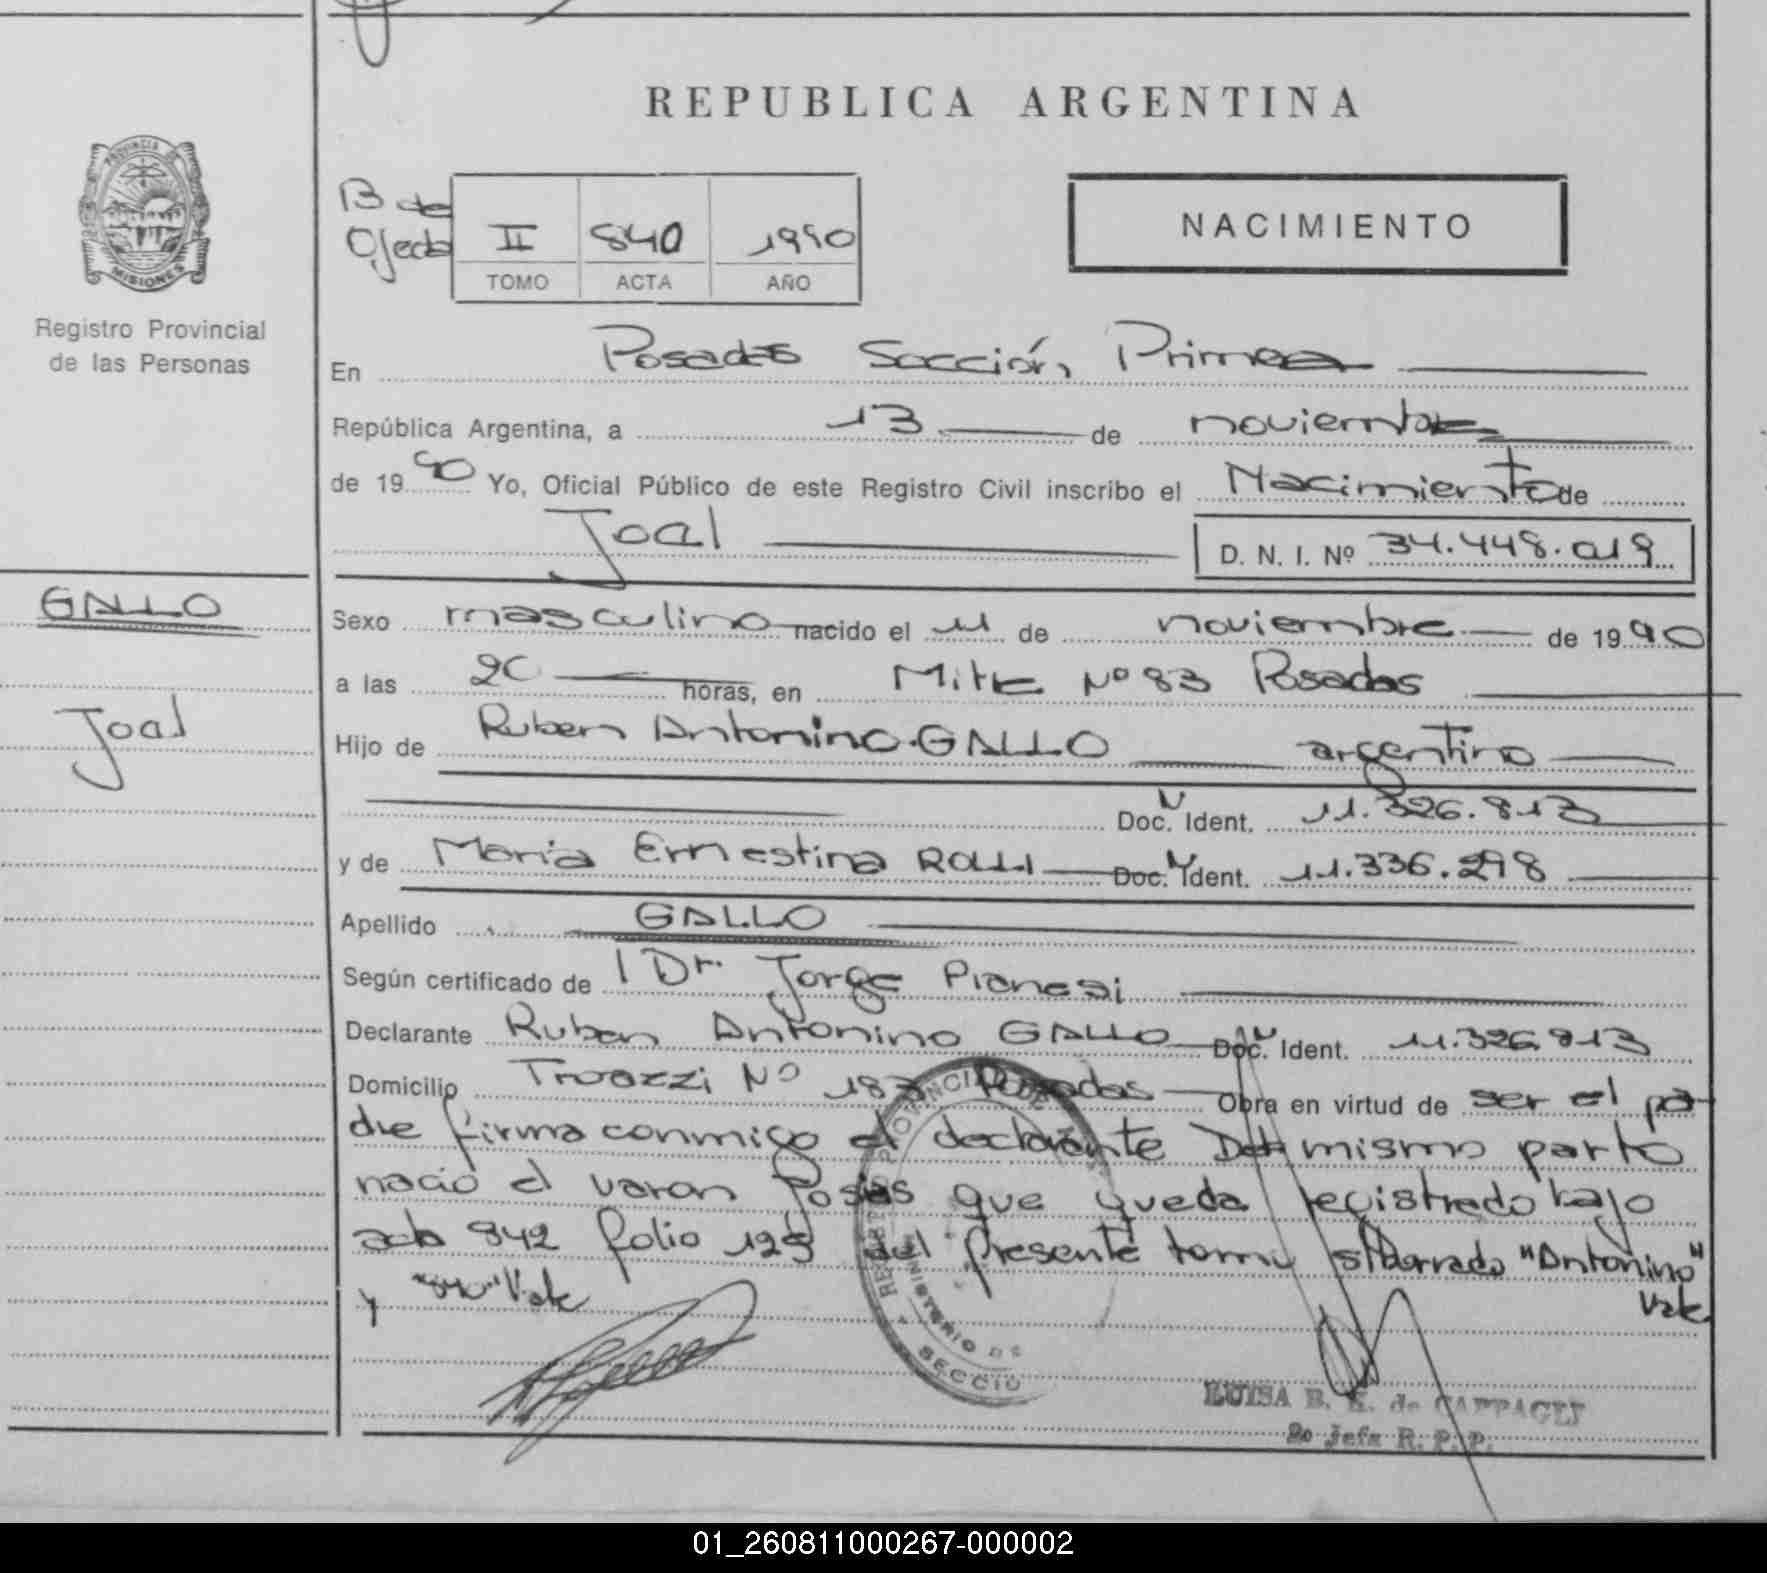 REPUBLICA ARGENTINA
PROVINCIA DE
MISIONES
Registro Provincial
de las Personas
B de
Ojeda
II 840 1990
TOMO ACTA AÑO
NACIMIENTO
En Posadas Sección Primera
República Argentina, a 13 de noviembre
de 19 90 Yo, Oficial Público de este Registro Civil inscribo el Nacimiento de
Joal D. N. I. Nº 34.448.019
GALLO
Joal
Sexo masculino nacido el 11 de noviembre de 19 90
a las 20 horas, en Mitre Nº 83 Posadas
Hijo de Ruben Antonino GALLO argentino
Doc. Ident. 11.326.813
y de Maria Ernestina ROLLI Doc. Ident. 11.336.298
Apellido GALLO
Según certificado de l Dr. Jorge Pianesi
Declarante Ruben Antonino GALLO Doc. Ident. 11.326.813
Domicilio Nº 183 Posadas Obra en virtud de ser el pa
dre firma conmigo el declarante Del mismo parto
nació el varon que queda registrado bajo
acta 842 folio 125 del presente tomo s/borrado "Antonino"
Vale
y "840" Vale
PROVINCIA DE
MINISTERIO DE
SECCIO
LUISA B. K. de CAPPAGLI
2º Jefa R. P. P.
01_260811000267-000002